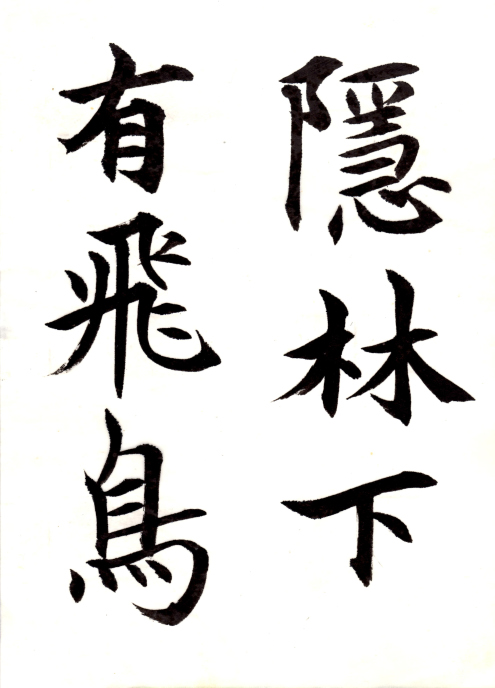 隱林下
有飛鳥